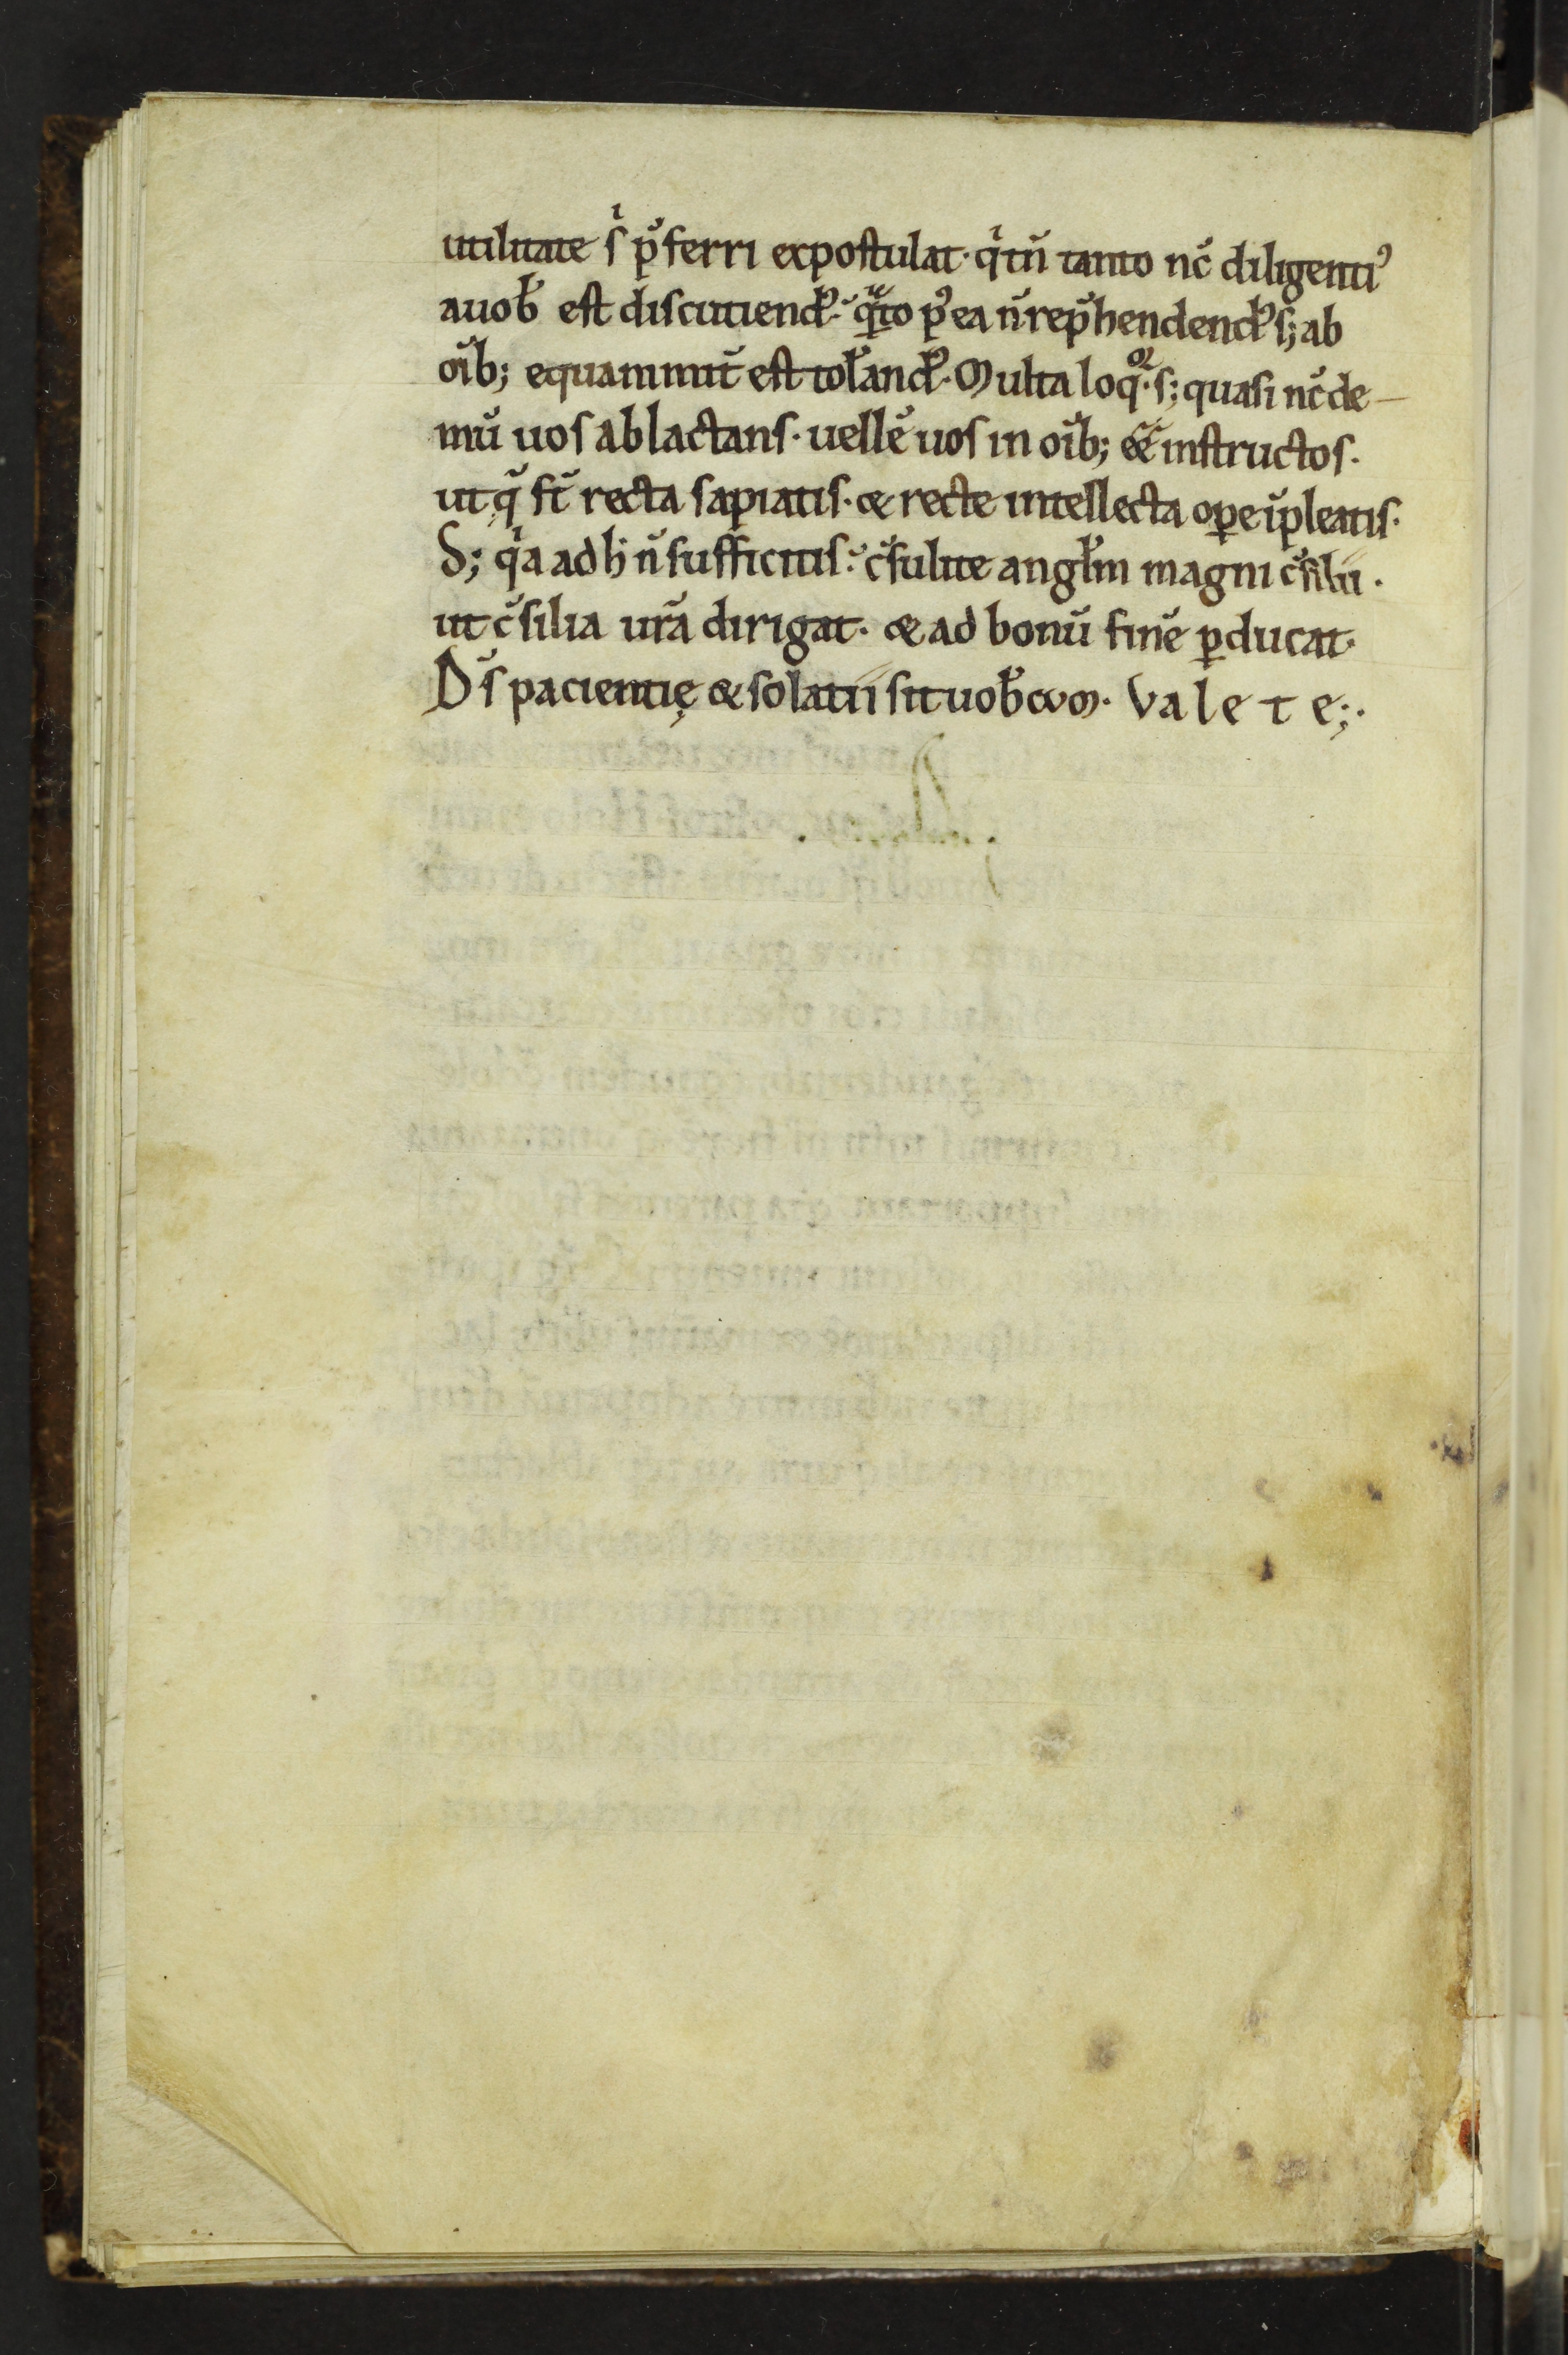 utilitate ſi p̄ferri expoſtulat· qͥ tn̄ tanto nc̄ diligentiꝰ
a uob̄ eſt diſcutiendꝰ· qͣnto pꝰea n̄ rep̄hendendꝰ ſ; ab
oīb; equanimit̄ eſt tol̄andꝰ· Multa loqͦꝛ· ſ; quasi nc̄ de-
mū uoſ ablactanſ· uellē uos in oīb; ee͞ inſtructoſ·
ut q̄ ſt̄ recta ſapiatiſ· & recte intellecta oꝑe īpleatiſ·
S; qͥa ad h̄ n̄ ſufficitiſ· c̄ſulite angl̄m magni c̄ſilii·
ut c̄ſilia ur̄a dirigat· & ad bonū finē ꝑducat·
Dſ̄ pacientię & solatii ſit uob̄cum· Valete;·